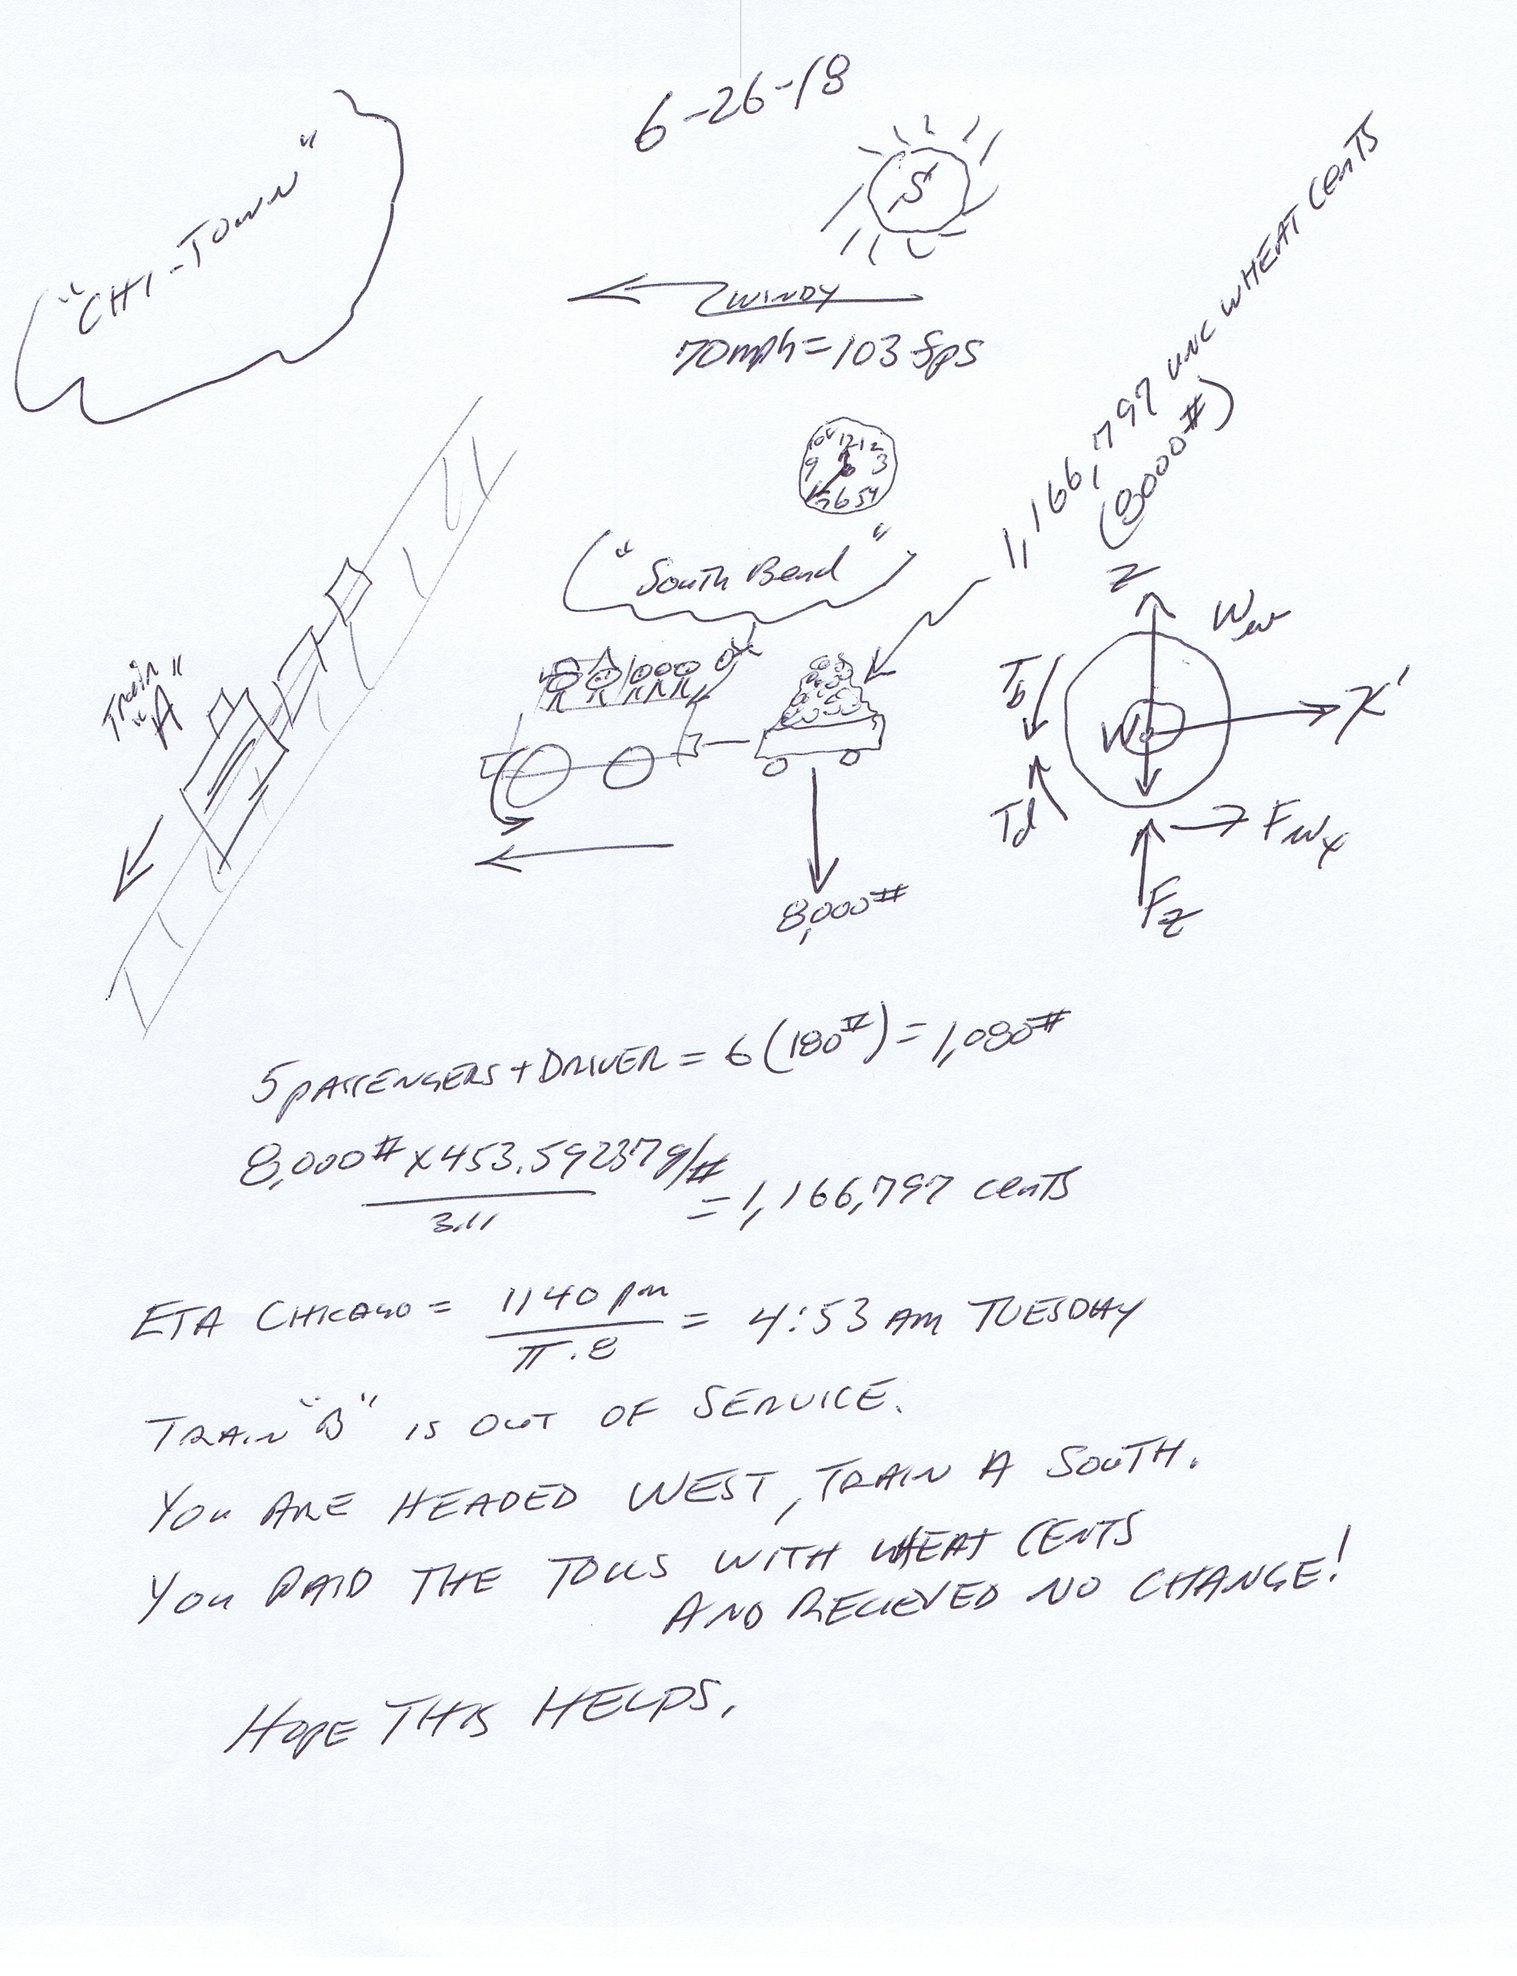 6-26-18
"CHI-TOWN"
S
WINDY
70mph = 103 fps
1,166,797 UNC WHEAT CENTS
(8000#)
10 12 1 2
9 3
7 6 5 4
"South Bend"
Train
"A"
8,000#
Z
W
X'
Tb
Td
Fwx
Fz
5 PASSENGERS + DRIVER = 6 (180#) = 1,080#
8,000# x 453.592379/#
3.11
= 1,166,797 cents
ETA CHICAGO = 1140 pm / π.8 = 4:53 AM TUESDAY
TRAIN "B" IS OUT OF SERVICE.
YOU ARE HEADED WEST, TRAIN A SOUTH.
YOU PAID THE TOLLS WITH WHEAT CENTS
AND RECIEVED NO CHANGE!
HOPE THIS HELPS,